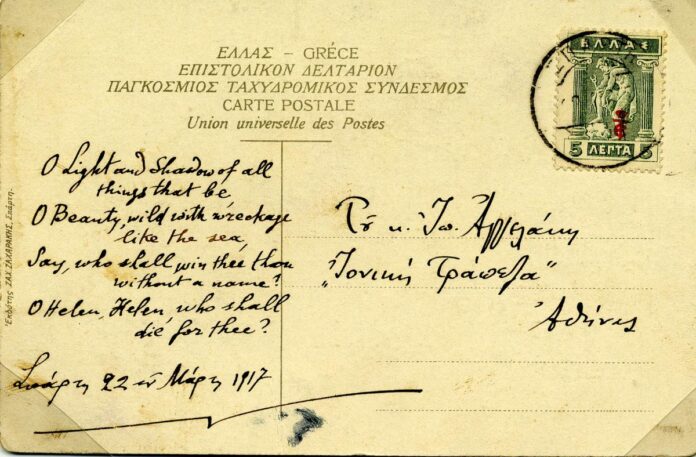 ΕΛΛΑΣ – GRÉCE
ΕΠΙΣΤΟΛΙΚΟΝ ΔΕΛΤΑΡΙΟΝ
ΠΑΓΚΟΣΜΙΟΣ ΤΑΧΥΔΡΟΜΙΚΟΣ ΣΥΝΔΕΣΜΟΣ
CARTE POSTALE
Union universelle des Postes
ΕΛΛΑΣ
5 ΛΕΠΤΑ 5
O Light and Shadow of all
things that be
O Beauty, wild with wreckage
like the sea,
Say, who shall win thee thou
without a name?
O Helen, Helen, who shall
die for thee?
Σπάρτη 22 Μάρτη 1917
κ. Ἰω. Ἀγγελάκη
„Ἰονική Τράπεζα"
Ἀθήνας
Ἐκδότης ΖΑΧ. ΣΑΚΑΡΑΚΗΣ, Σπάρτη.